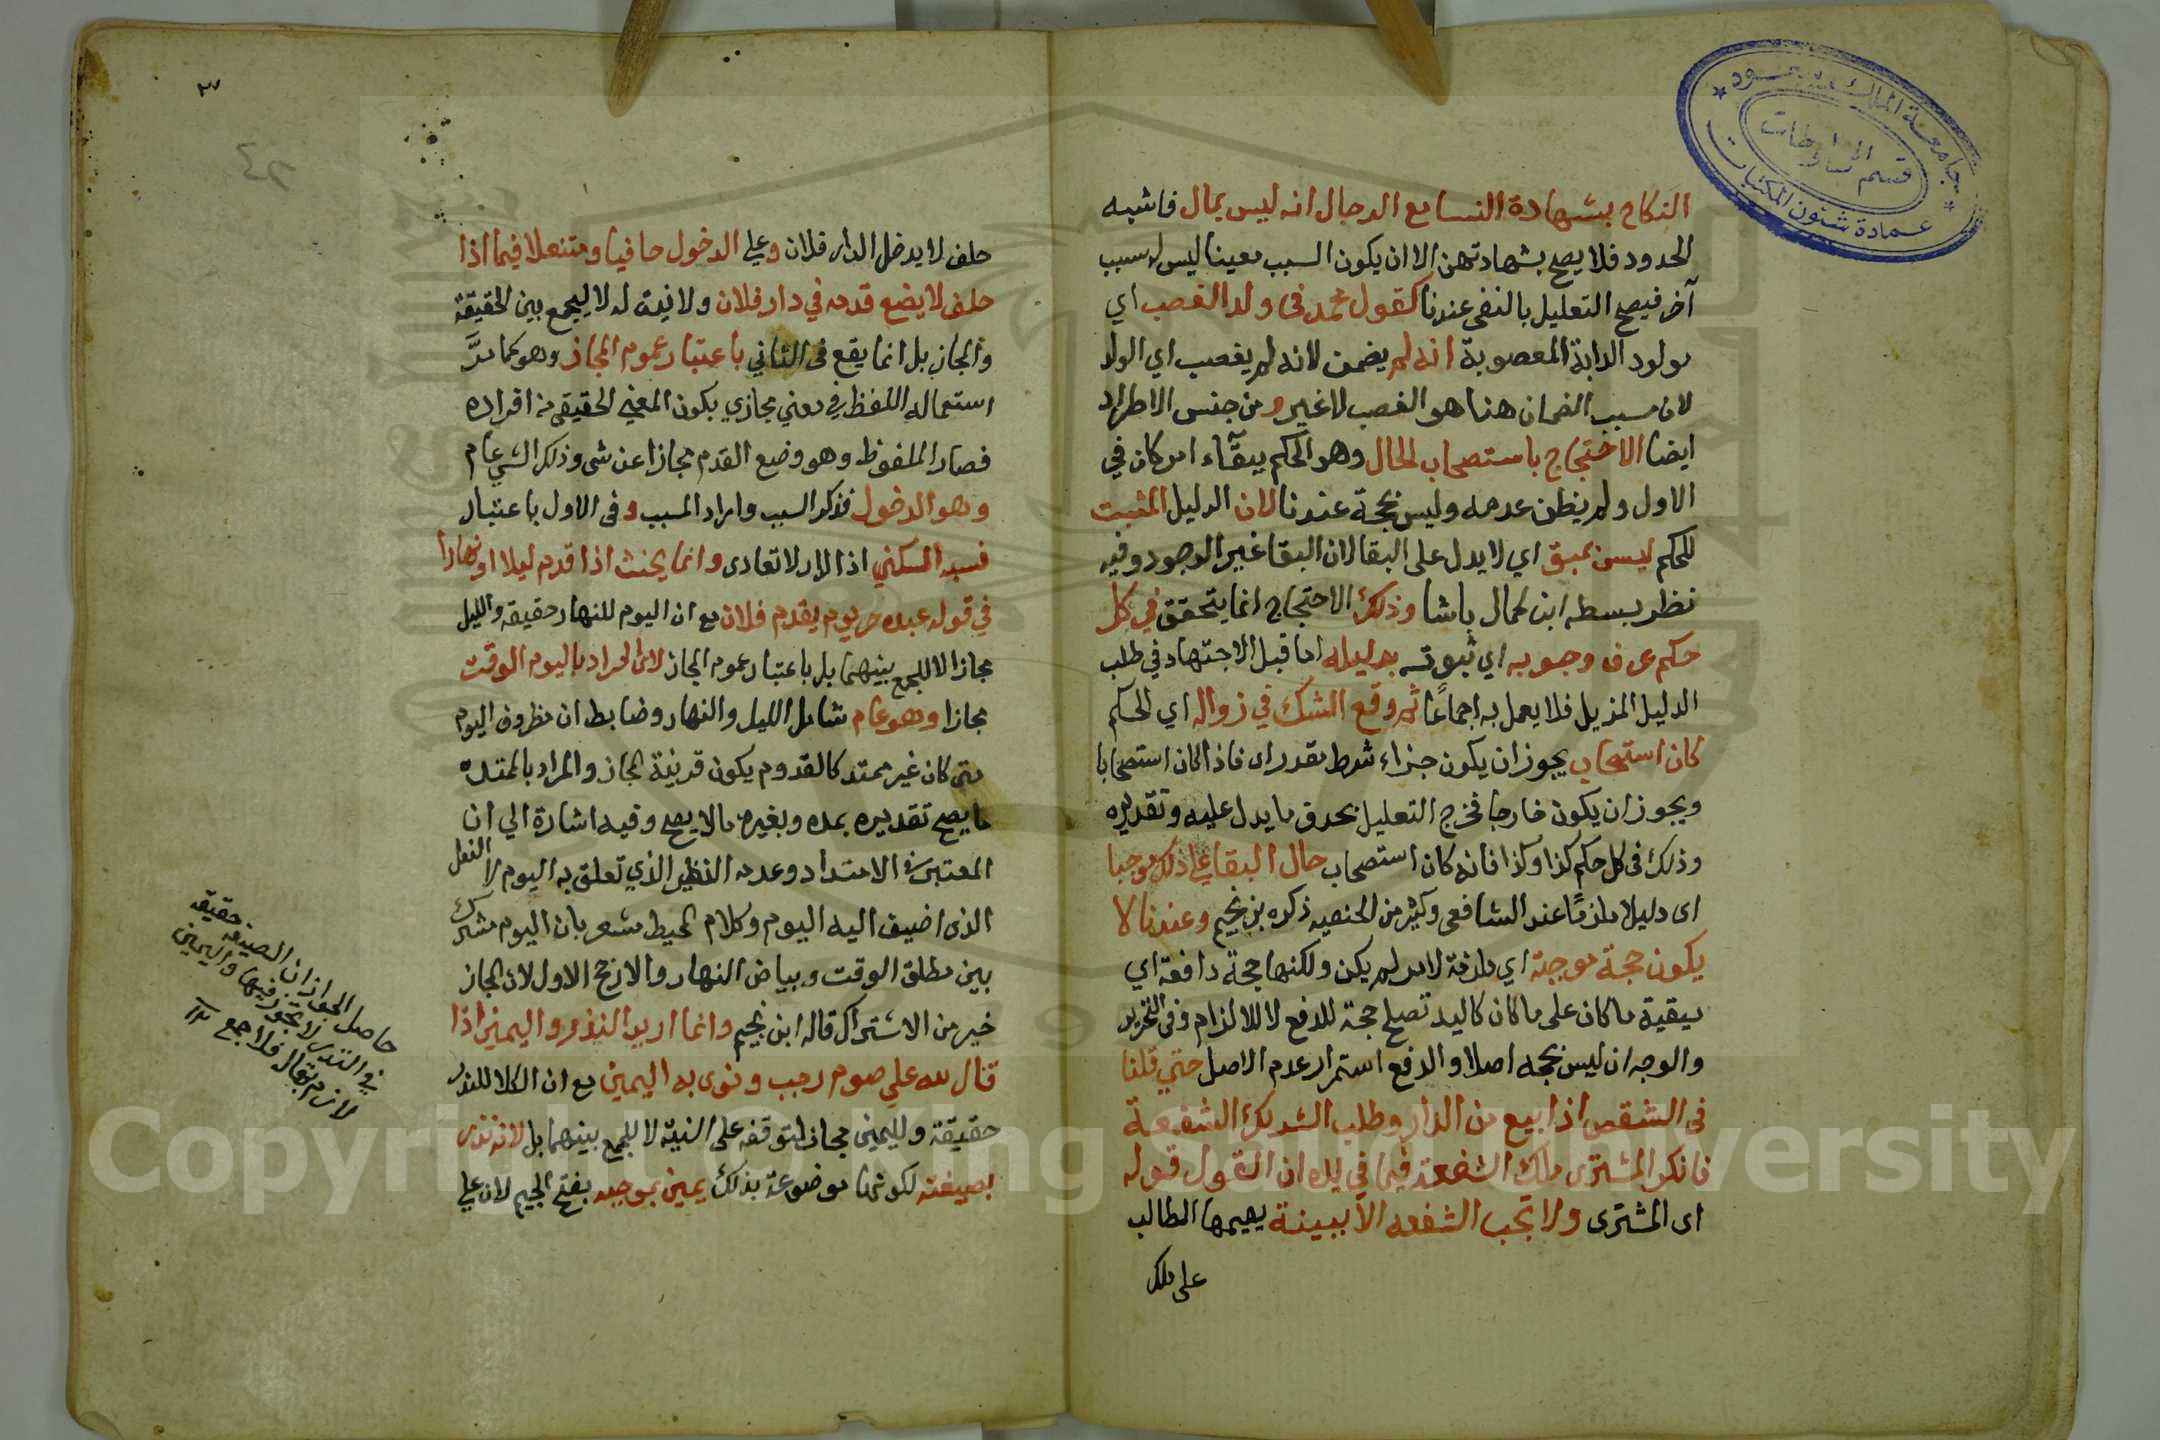 النكاح بشهادة النسا مع الرجال انه ليس بمال فاشبه
الحدود فلا يصح بشهادتهن الا ان يكون السبب معينا ليس له سبب
آخر فيصح التعليل بالنفى عندنا كقول محمد فى ولد الغصب اي
مولود الدابة المغصوبة انه لم يضمن لانه لم يغصب اي الولد
لان سبب الضمان هنا هو الغصب لا غير ومن جنس الاطراد
ايضا الاحتجاج باستصحاب الحال وهو الحكم ببقآء امر كان في
الاول ولم يظن عدمه وليس بحجة عندنا لان الدليل المثبت
للحكم ليس بمبق اي لا يدل على البقا لان البقا غير الوجود وفيه
نظر بسطه ابن كمال باشا وذلك الاحتجاج انما يتحقق في كل
حكم عرف وجوبه اي ثبوته بدليله اما قبل الاجتهاد في طلب
الدليل المزيل فلا يعمل به اجماعًا ثم وقع الشك في زواله اي الحكم
كان استصحاب يجوز ان يكون جزاء شرط مقدر اى فاذا كان استصحابا
ويجوز ان يكون خارجا مخرج التعليل بحذف ما يدل عليه وتقديره
وذلك فى كل حكم كذا وكذا فانه كان استصحاب حال البقا على ذلك موجبا
اى دليلا ملزمًا عند الشافعى وكثير من الحنفيه ذكره بن نجيم وعندنا لا
يكون حجة موجبة اي ملزمة لامر لم يكن ولكنها حجة دافعة اي
مبقية ما كان على ما كان كاليد تصلح حجة للدفع لا للالزام وفى التحرير
والوجه ان ليس بحجه اصلا والدفع استمرار عدم الاصل حتي قلنا
فى الشقص اذا بيع من الدار وطلب الشريك الشفعة
فانكر المشترى ملك الشفعة فيما في يده ان القول قوله
اى المشترى ولا تجب الشفعه الا ببينة يقيمها الطالب
على ملك
حلف لا يدخل الدار فلان وعلى الدخول حافيا ومتنعلا فيما اذا
حلف لا يضع قدمه في دار فلان ولا نية له لا ليجمع بين الحقيقة
والمجاز بل انما يقع فى الثاني باعتبار عموم المجاز وهو كما مرَّ
استعمال اللفظ في معني مجازي يكون المعني الحقيقى من افراده
فصار الملفوظ وهو وضع القدم مجازا عن شى وذلك الشي عام
وهو الدخول فذكر السبب واراد المسبب وفى الاول باعتبار
نسبه السكني اذ الدار لا تعادى وانما يحنث اذا قدم ليلا او نهارا
في قوله عبده حر يوم يقدم فلان مع ان اليوم للنهار حقيقه والليل
مجازا لا للجمع بينهما بل باعتبار عموم المجاز لان المراد باليوم الوقت
مجازا وهو عام شامل الليل والنهار وضابط ان مظروف اليوم
متى كان غير ممتد كالقدوم يكون قرينة المجاز والمراد بالممتد
ما يصح تقديره بمده وبغيره ما لا يصح وفيه اشارة الي ان
المعتبر فى الامتداد وعدمه النظير الذي تعلق به اليوم لا الفعل
الذى اضيف اليه اليوم وكلام المحيط مشعر بان اليوم مشترك
بين مطلق الوقت وبياض النهار والارجح الاول لان المجاز
خير من الاشتراك قاله ابن نجيم وانما اريد النذر واليمين اذا
قال لله علي صوم رجب ونوى به اليمين مع ان الكلا للنذر
حقيقة ولليمين مجاز لتوقفه على النية لا للجمع بينهما بل لانه نذر
بصيغته لكونها موضوعة بذلك يمين بموجبه بفتح الجيم لان على
حاصل الجواز ان الصيغه حقيقه
في النذر لا تجوز فيها واليمين
لازم
٣
٤٢
جامعة الملك سعود
قسم المخطوطات
عمادة شئون المكتبات
Copyright © King Saud University